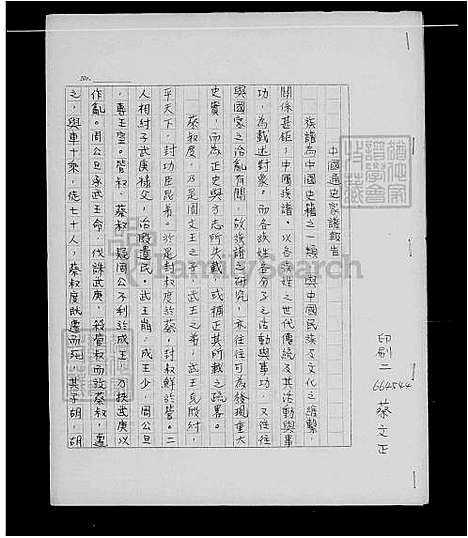 No.
中國通史家譜報告
族譜為中國史籍之一類，與中國民族及文化之維繫，
關係甚鉅；中國族譜。以各族姓之世代傳統及其活動與事
功，為載述對象。而各族姓各分子之活動與事功，又往往
與國家之治亂有關，故族譜之研究，亦往往可為發現重大
史實，而為正史與方志所失載，或補正其所載之疏畧。
蔡叔度，乃是周文王之子，武王之弟，武王克殷紂，
平天下，封功臣昆弟。於是封叔度於蔡。封叔鮮於管。二
人相紂子武庚祿父，治殷遺民。武王崩，成王少，周公旦
專王室。管叔、蔡叔，疑周公不利於成王，乃挾武庚以
作亂。周公旦承武王命，伐誅武庚，殺管叔而放蔡叔，遷
之，與車十乘，徒七十人，蔡叔度既遷而死，其子胡，胡
印刷二 664544 蔡文正
譜系家
譜學會
持藏
FamilySearch